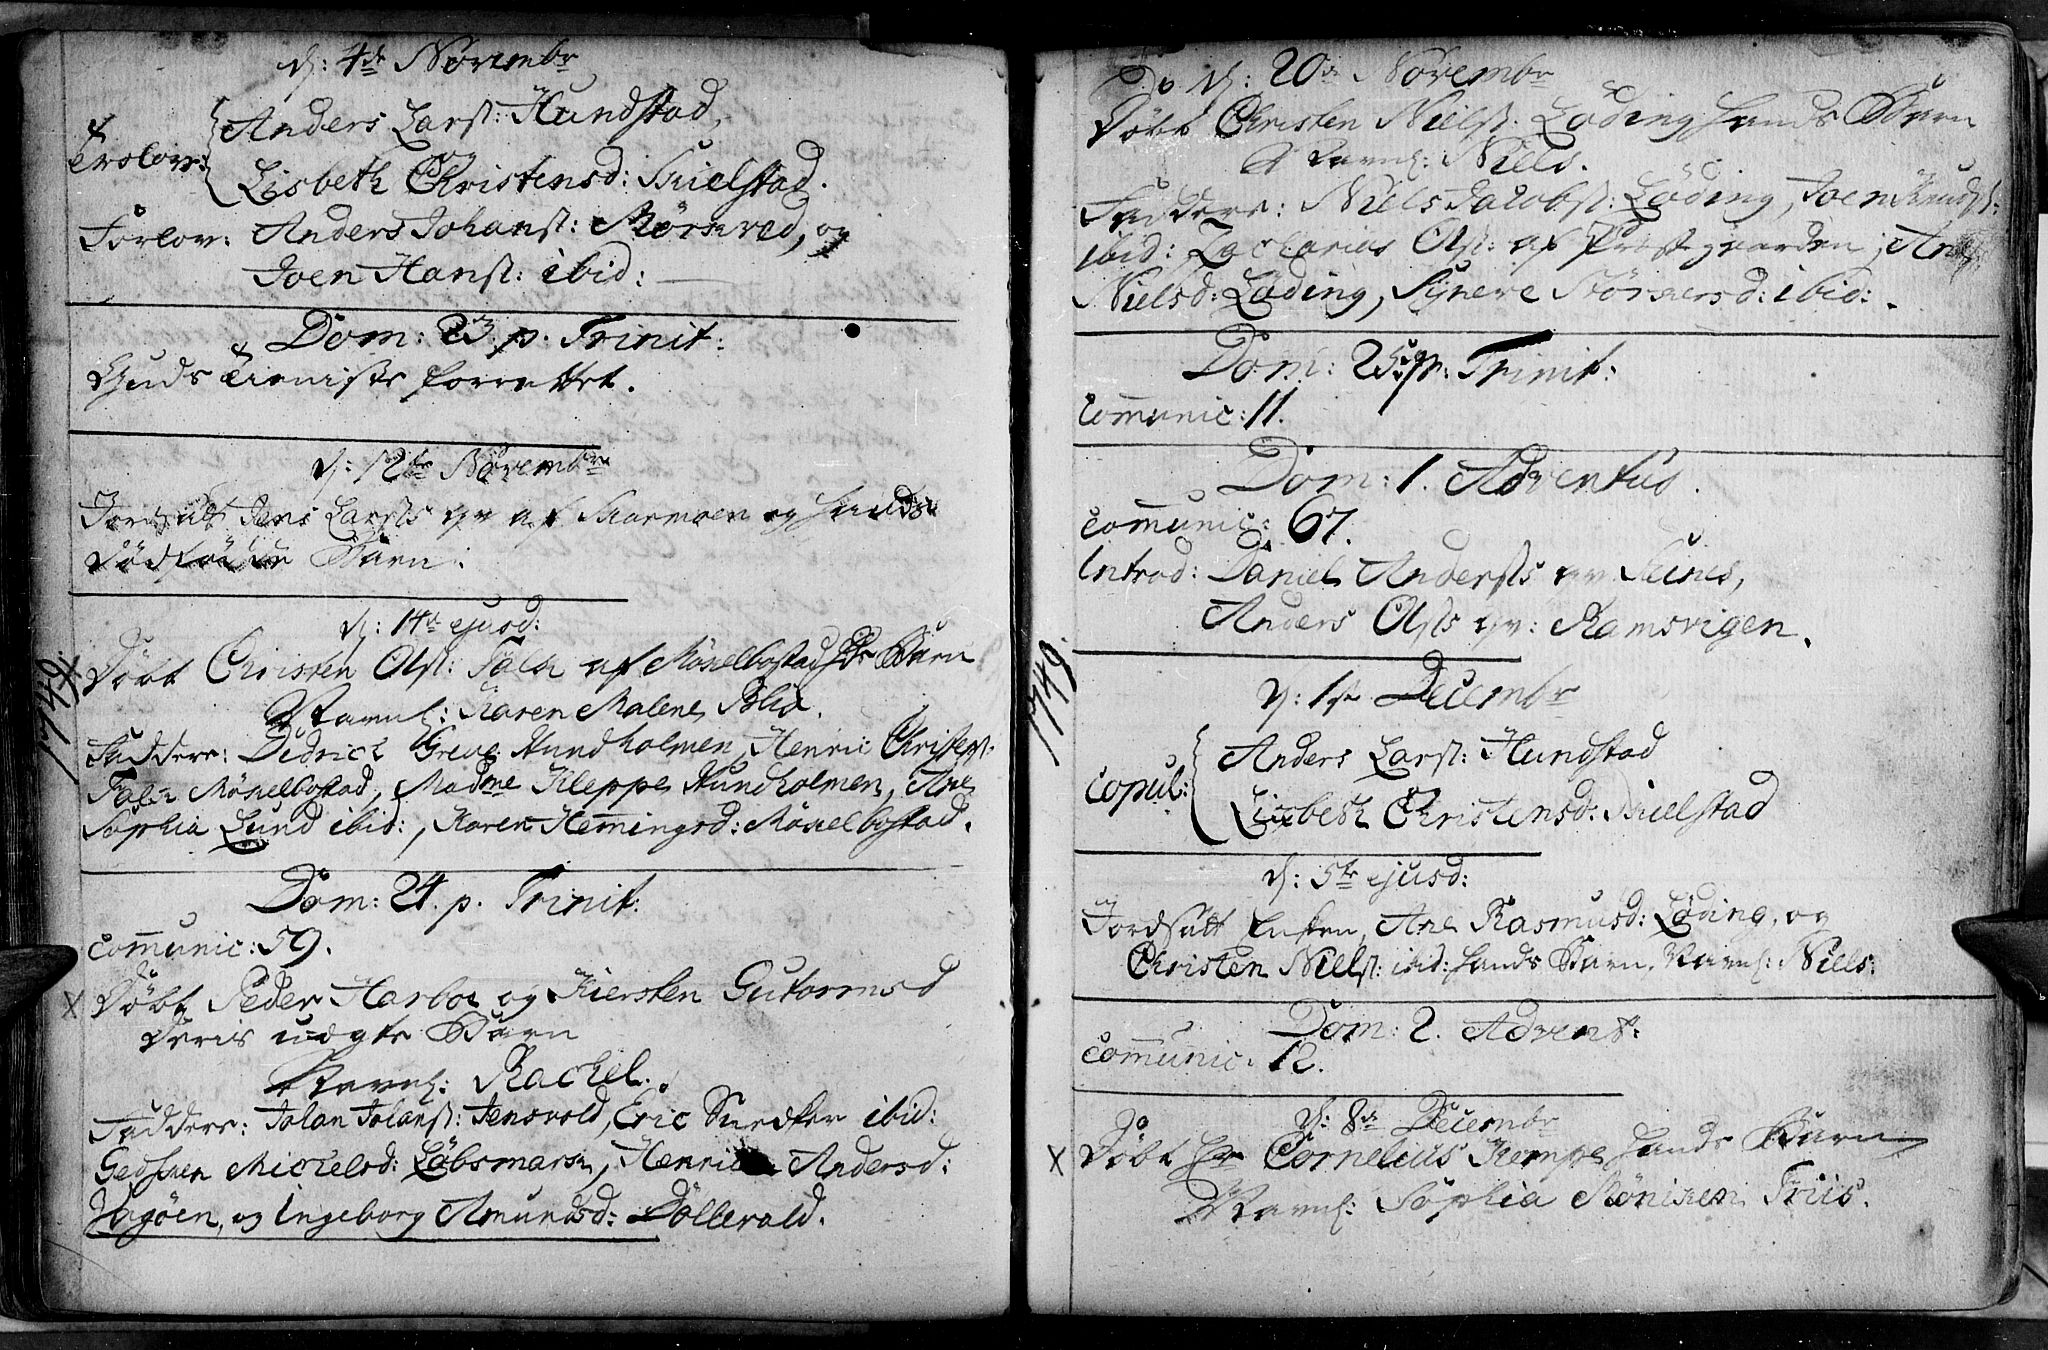 d: 4de Novembr
Trolov: Anders Larss: Hundstad,
Lisbeth Christensd: Skielstad.
Forlov: Anders Johanss: Mørkved, og
Joen Hanss: ibid:
Dom: 23. p. Trinit:
Guds Tieniste forrettet.
d: 12te Novembr
Jordsatt Jens Larsøs qv af Skarmoen og hends
dødfødde Barn.
d: 14de ejusd:
1749.
Døbt Christen Olss: Falch af Møckelbostad Hds Barn
Navnl: Karen Malene Blix.
Faddere: Didrich Greve Hundholmen, Henric Christenss:
Falch Møckelbostad, Madme Kleppe Hundholmen, Ane
Sophia Lund ibid:, Karen Hemmingsd: Møckelbostad.
Dom: 24. p. Trinit:
communic: 59.
X Døbt Peder Harboe og Kiersten Gutormsd
Deris uægte Barn
Navnl: Rachel.
Faddere: Johan Johanss: Jensvold, Eric ibid:
Michelsd: Løbsmarch, Andersd:
og Ingeborg Amundsd:
d: 20de Novembr
Døbt Christen Nielss. Løding hands Barn
Navnl: Niels.
Faddere: Niels Jacobss: Løding, Joen Knudss:
ibid: Zacharias Olss: af Præstgaarden, Ane
Nielsd: Løding, Synere Størchersd: ibid:.
Dom: 25. p. Trinit:
communic: 11.
Dom: 1. Adventus.
communic: 67.
Introd: Daniel Anderss qv. Seines,
Anders Olss qv: Ramsvigen.
1749.
d: 1ste Decembr
Copul: Anders Larss: Hundstad
Lisbeth Christensd: Skielstad
d: 5te ejusd:
Jordsatt Enken, Ane Rasmusd: Løding, og
Christen Nielss: ibid: hands Barn, Navnl: Niels:
Dom: 2. Advent:
communic: 12.
d: 8de Decembr
X Døbt Hr Cornelius Kempe hands Barn
Navnl: Sophia Mønichen Friis.